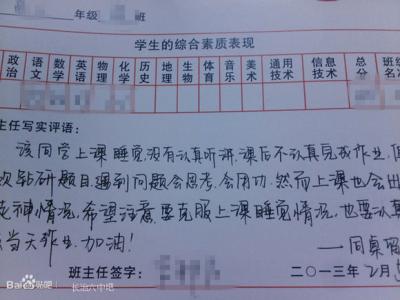 年级 班
学生的综合素质表现
政治 语文 数学 英语 物理 化学 历史 地理 生物 体育 音乐 美术 通用技术 信息技术 总分 班级名
主任写实评语:
该同学上课睡觉,没有认真听讲,课后不认真完成作业,但
欢钻研题目,遇到问题会思考,会用功,然而上课也会出
走神情况,希望注意要克服上课睡觉情况,也要认真
当天作业,加油!
——同桌
班主任签字: 二○一三年 2月
Bai百度贴吧 长治六中吧